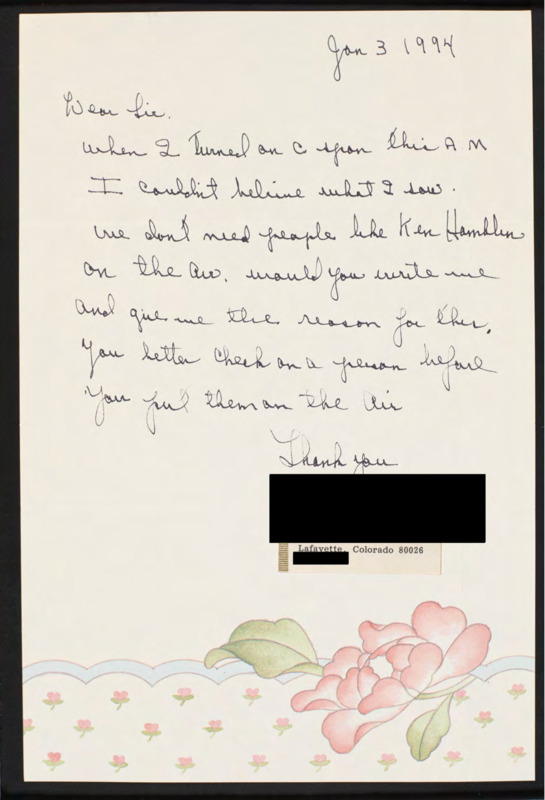 Jan 3 1994
Dear Sir.
when I Turned on C span this A M
I couldn't believe what I saw.
we don't need people like Ken Hamblin
on the air. would you write me
and give me the reason for this.
You better check on a person before
You put them on the Air
Thank you
Lafayette, Colorado 80026